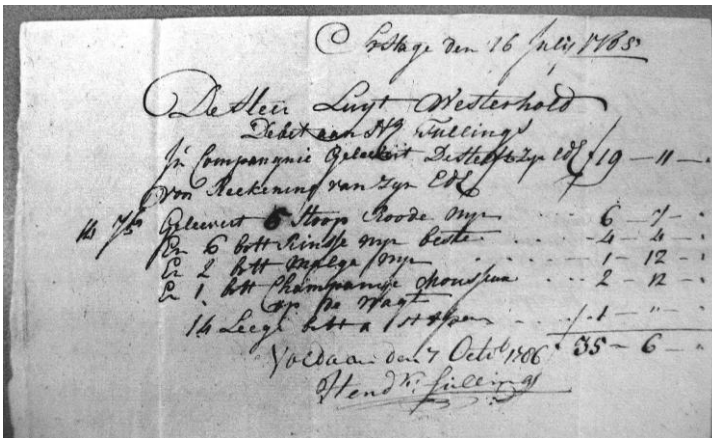 Hage den 16 July 1785
De Heer Luyt Westerhold
Debet aan Hk Fullings
In Compangnie Geleevert De Helft Zyn Edl 19 - 11 -
von Reekening van Zyn Edl
Geleevert 5 Stoop Roode wyn 6 - 7 -
En 6 bott Rinsse wyn beste 4 - 4 -
En 2 bott wyn 1 - 12 -
En 1 bott Champanje 2 - 12 -
op de wagt
14 Leege bott a 1 - " -
Voldaan den 7 Octob 1786 35 - 6 -
Hendk Fullings